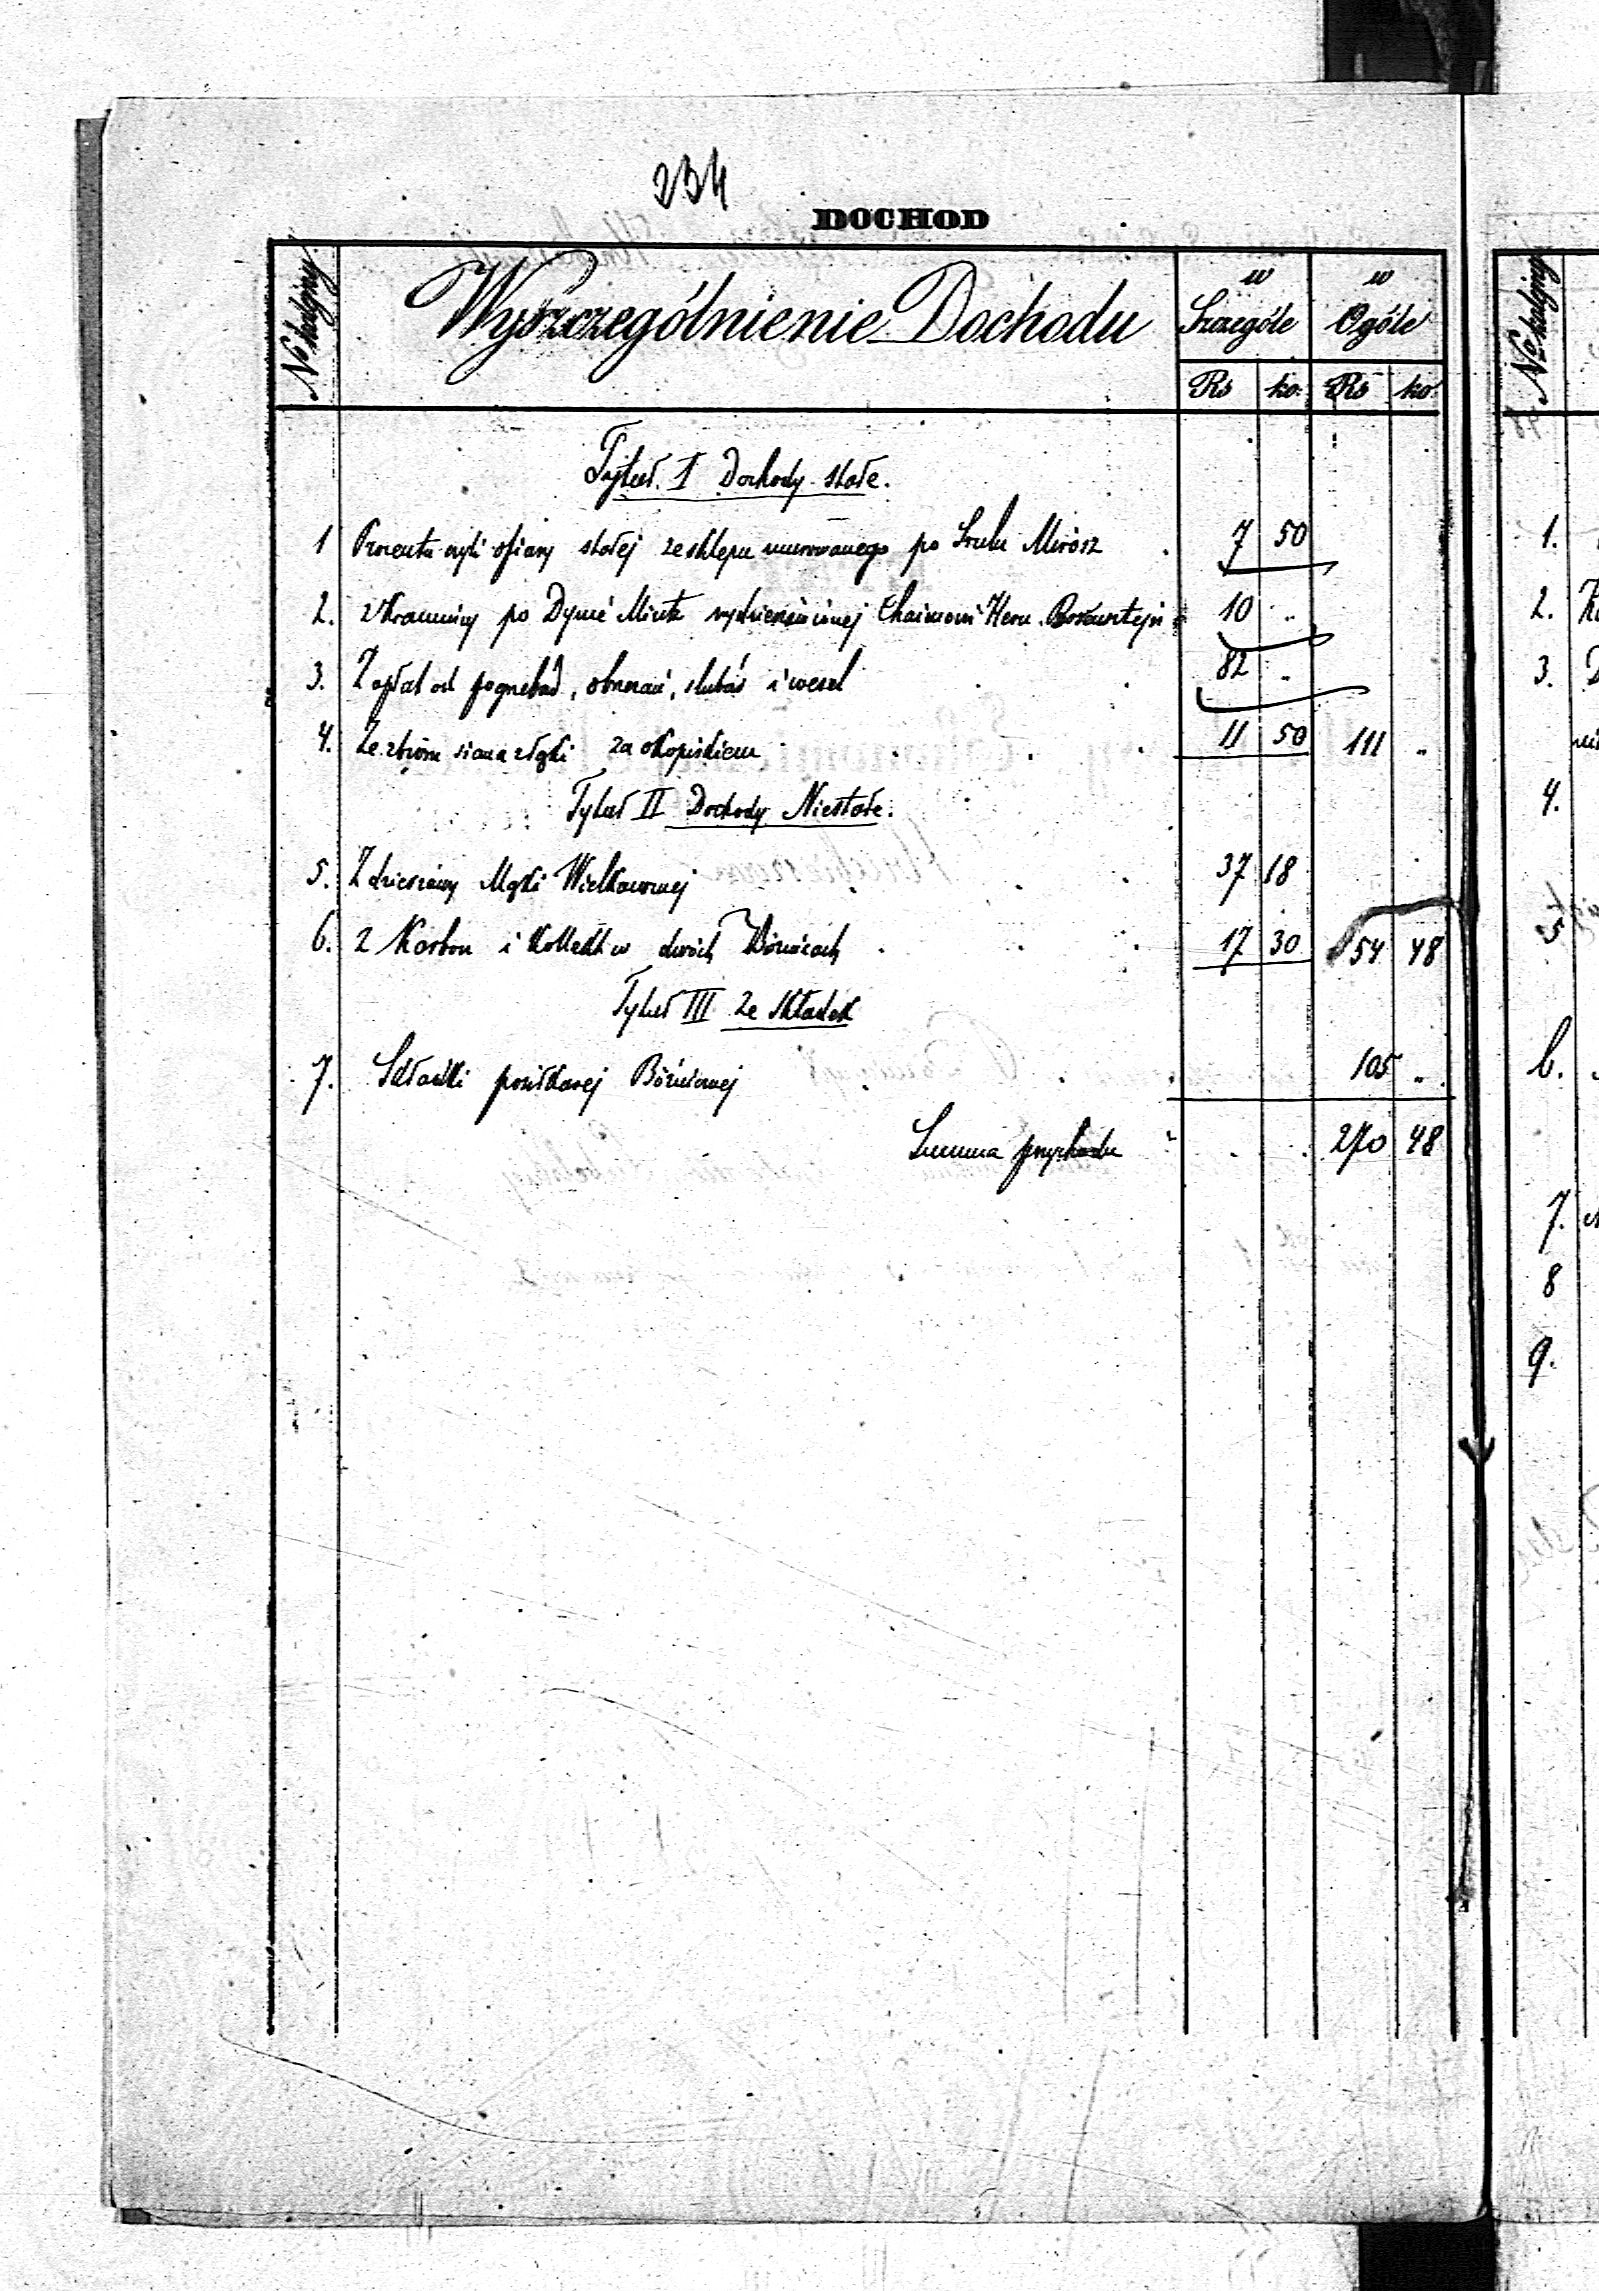 234
DOCHOD
No kolejny
Wyszczególnienie Dochodu
w Szczególe
w Ogóle
Rs ko. Rs ko.
Tytuł I Dochody stałe.
1 Procentu czyli ofiary stałej ze sklepu murowanego po Srulu Mirosz 7 50
2. z Kramnicy po Dymé wydzierżawionej Chaimowi 10 "
3. Z opłat od pogrzebów, obrzezań, ślubów i wesel 82 "
4. Ze zbioru siana z łąki za okopiskiem 11 50 111 "
Tytuł II Dochody Niestałe.
5. Z dzierżawy Mąki Wielkanocnej 37 18
6. z Karbon i Kollekt w dwóch Bóżnicach 17 30 54 48
Tytuł III Ze składek
7. Składki posiłkowej Bóżnicznej 105 "
Summa przychodu 270 48
No kolejny
1.
2.
3.
4.
5
6.
7.
8
9.